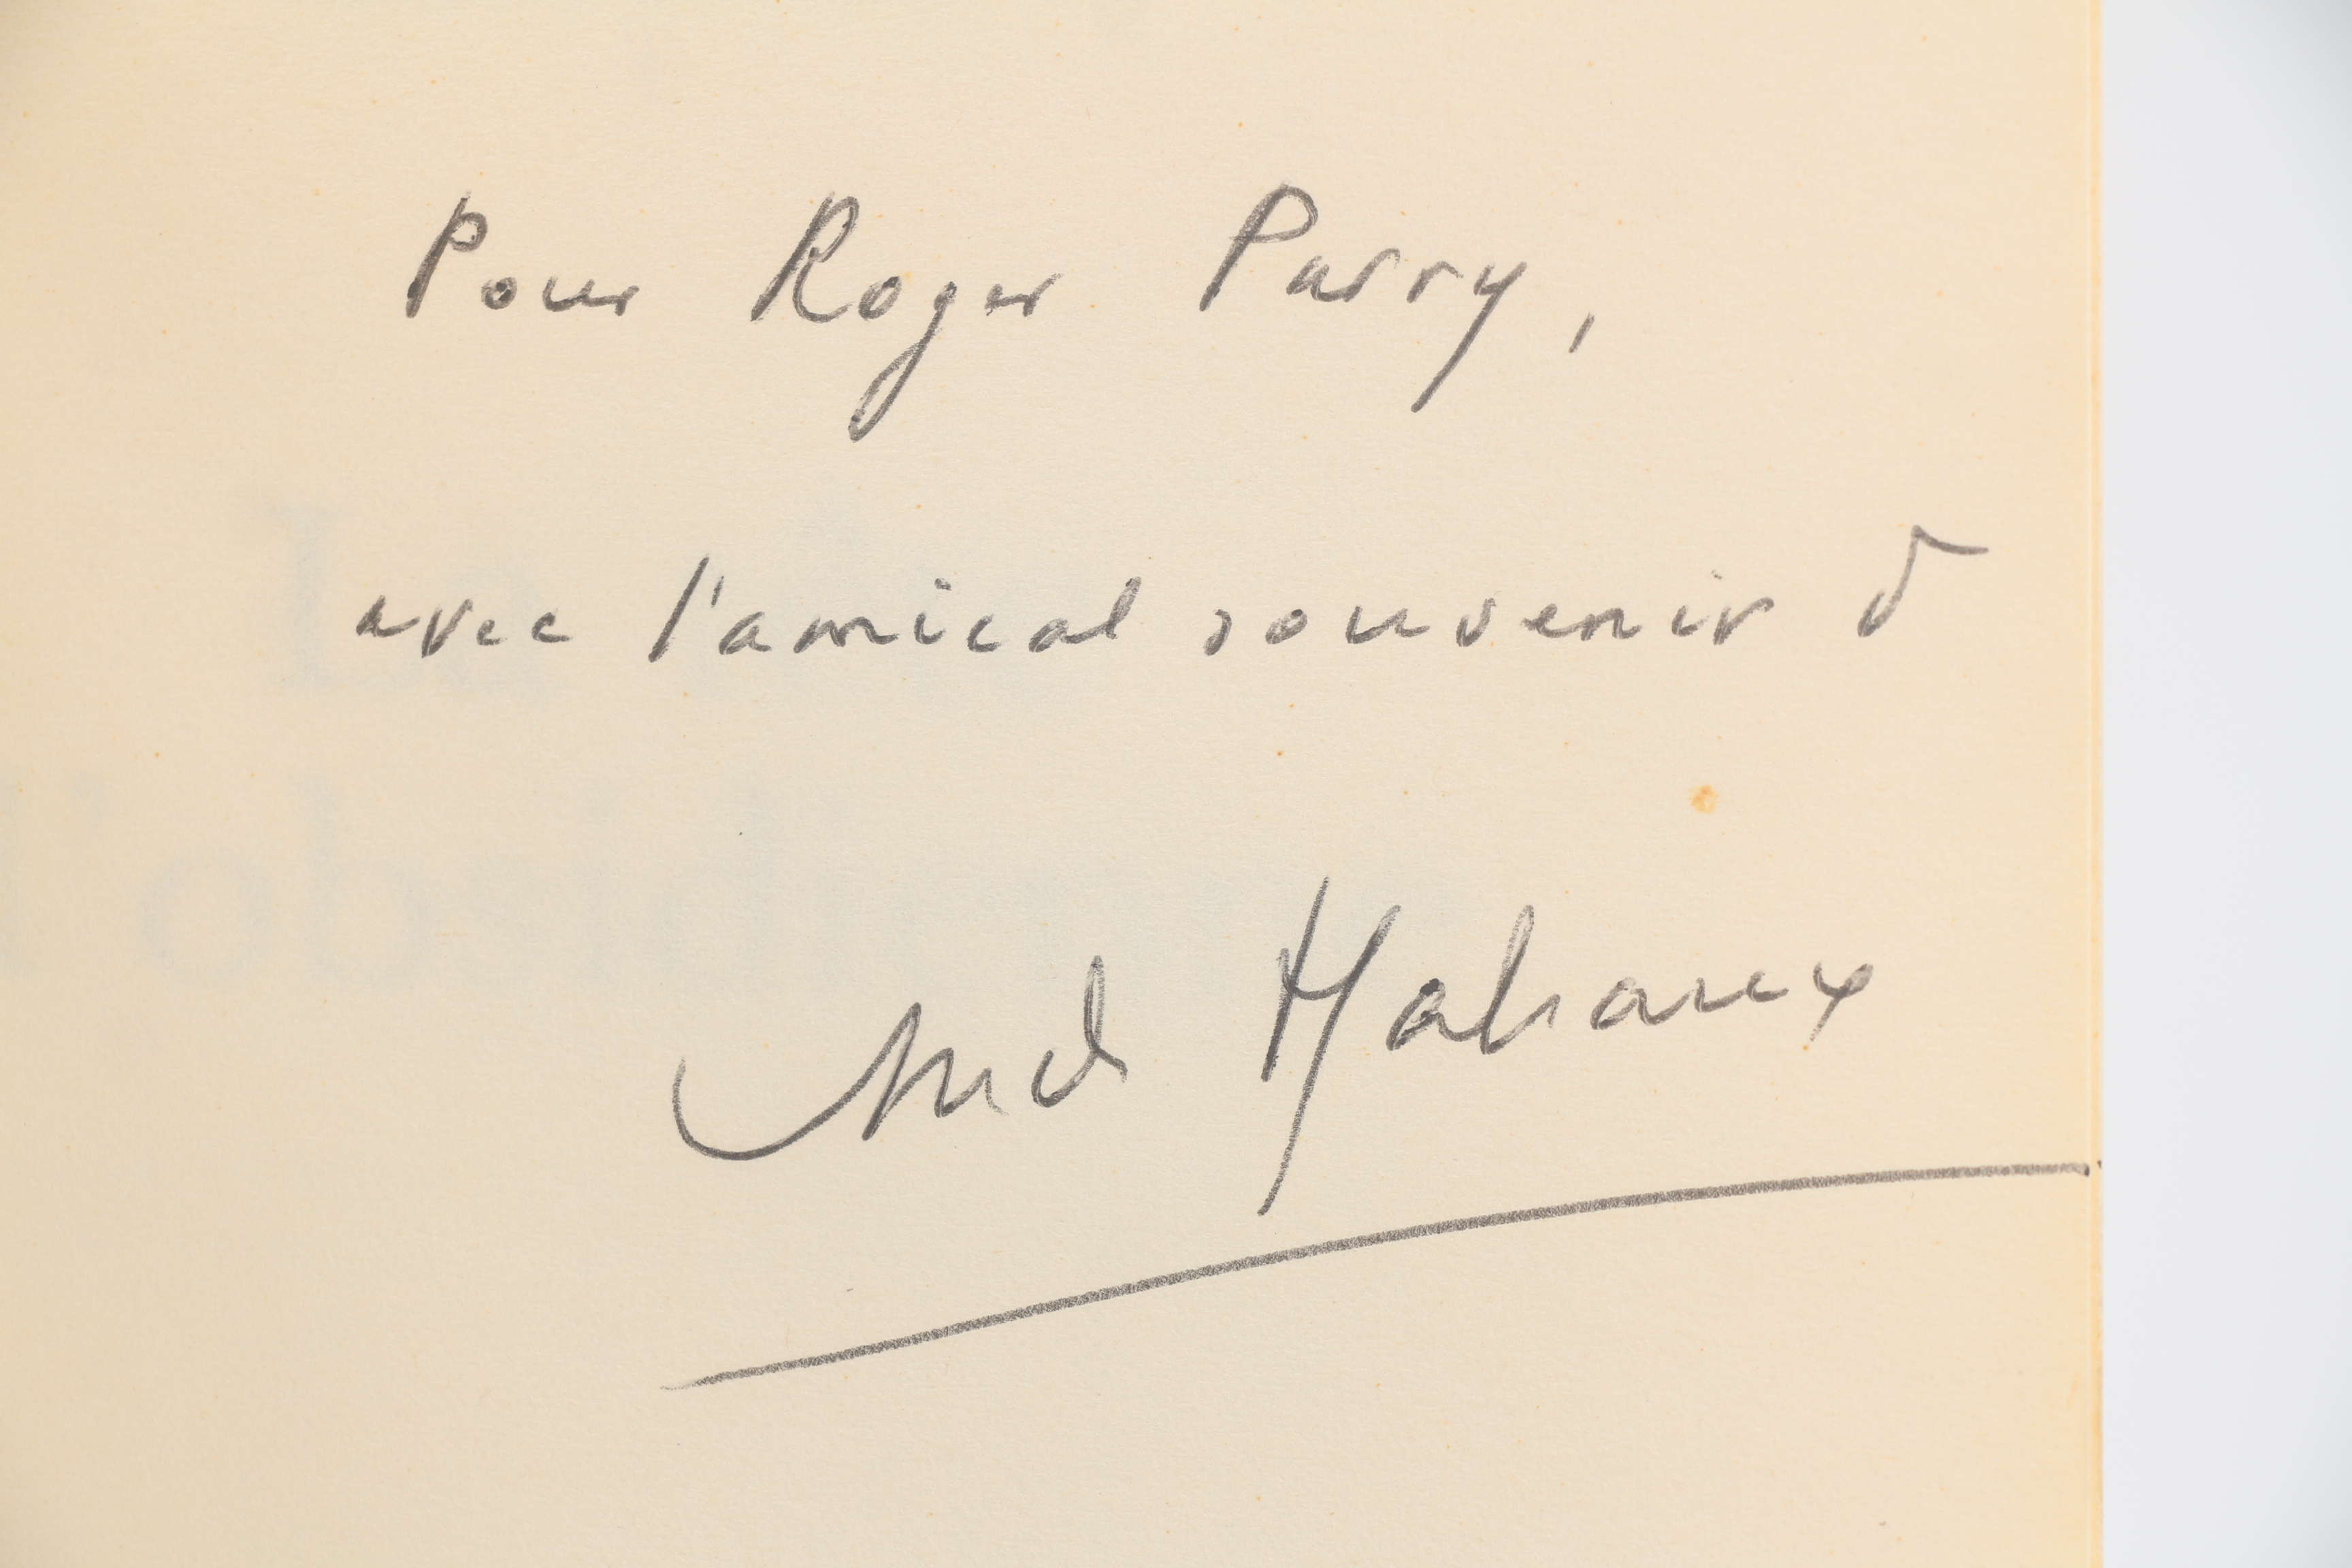 Pour Roger Parry,
avec l'amical souvenir d
André Malraux